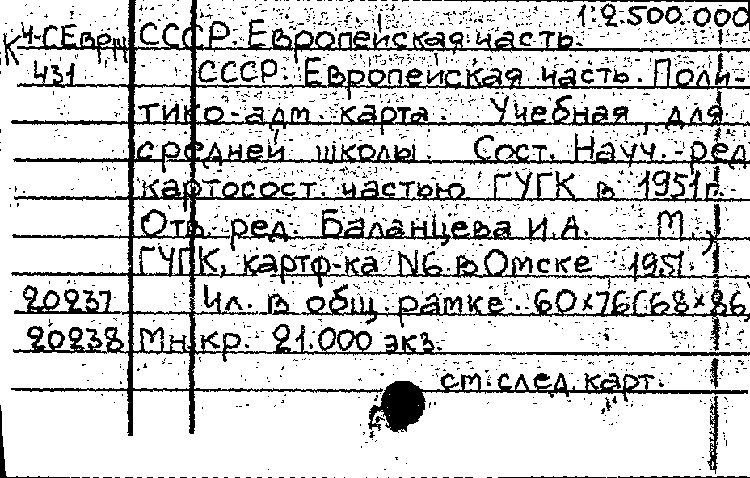 1:2.500.000
К Ч-СЕвр СССР. Европейская часть.
431 СССР. Европейская часть. Поли-
тико-адм. карта. Учебная для
средней школы. Сост. Науч.-ред
картосост. частью ГУГК в 1951г.
Отв. ред. Баланцева И.А. М.,
ГУГК, картф-ка N6 в Омске 1951.
20237 4л. в общ. рамке. 60×76(68×86,
20238 Мн.кр. 21.000 экз.
см. след. карт.